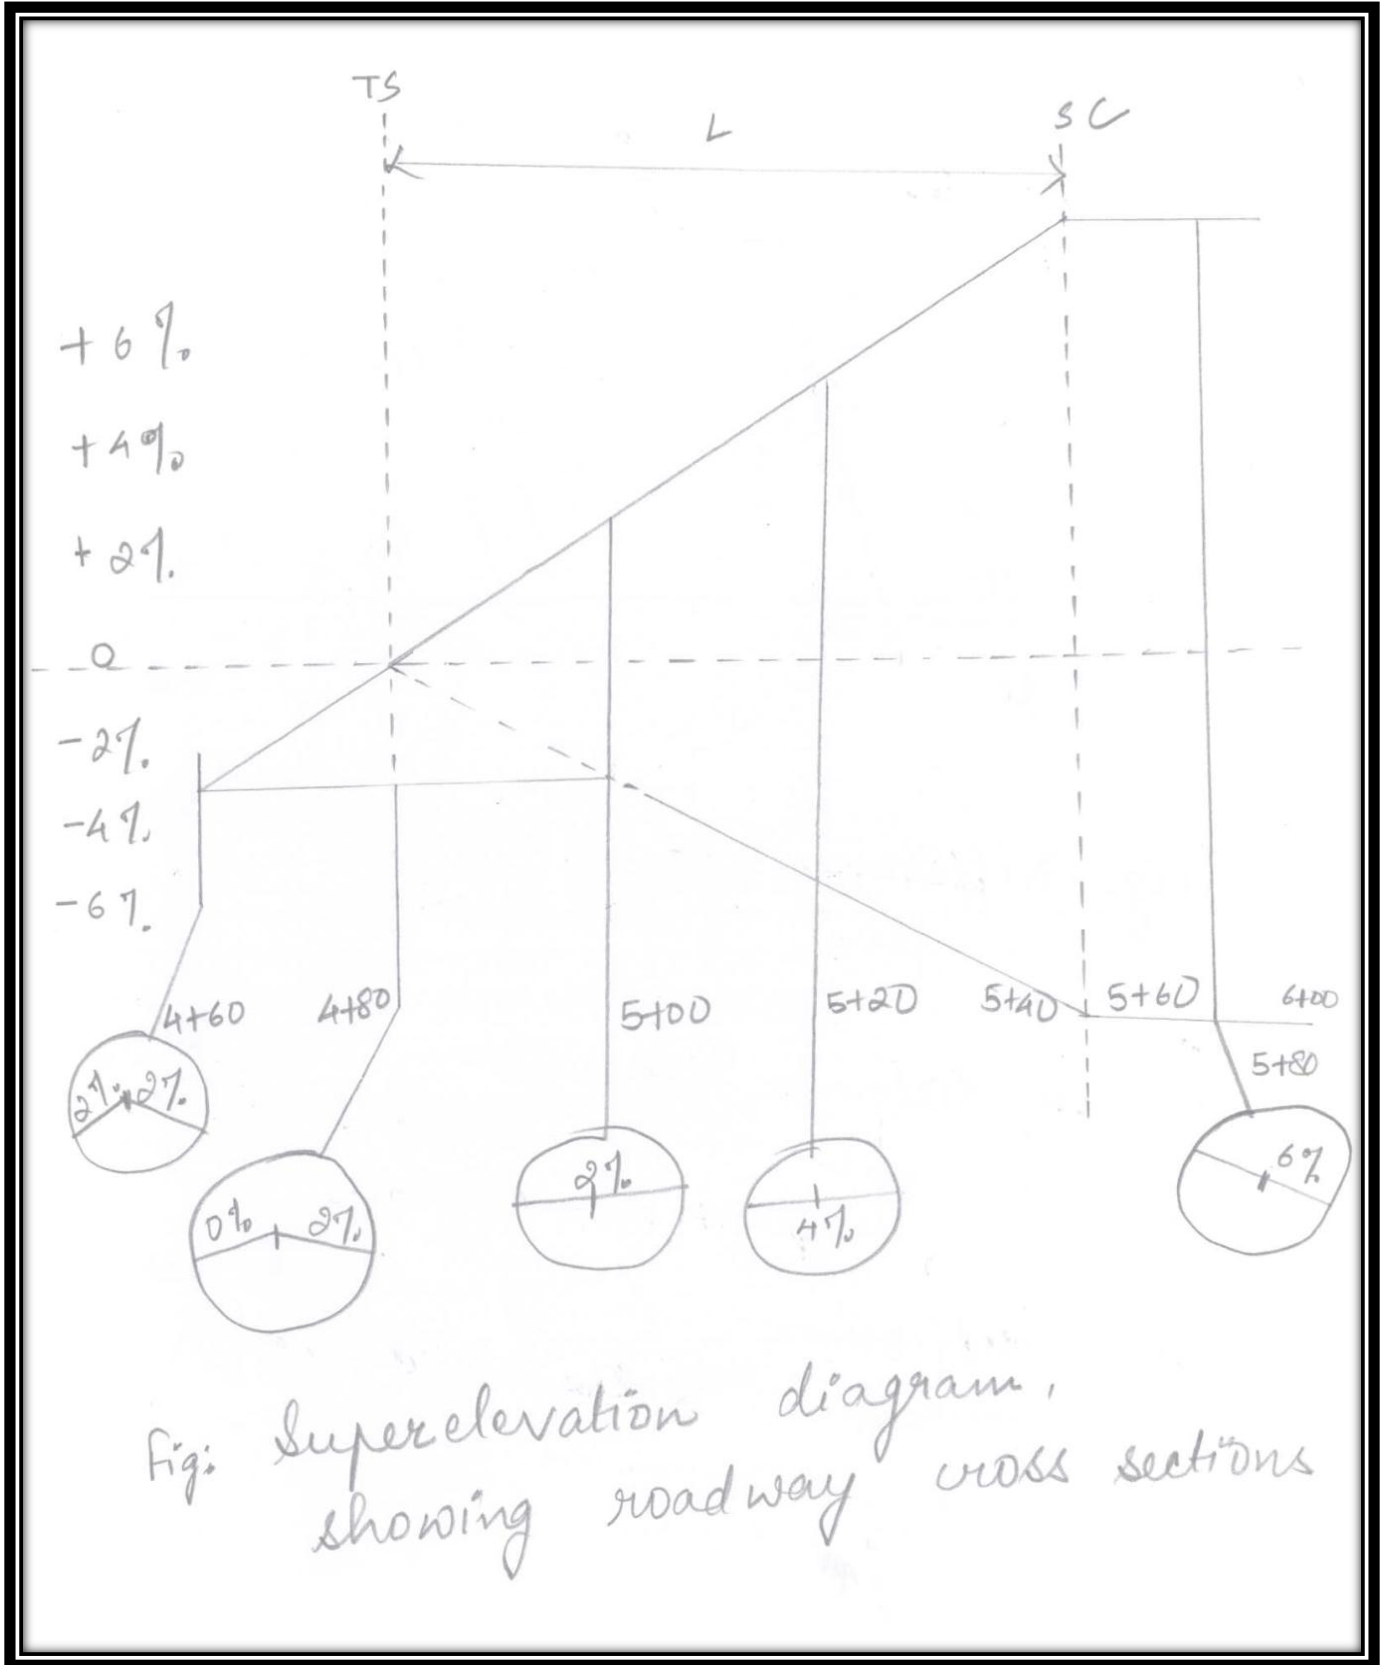 TS
SC
L
+6%
+4%
+2%
0
-2%
-4%
-6%
4+60
4+80
5+00
5+20
5+40
5+60
6+00
5+80
2% 2%
0% 2%
2%
4%
6%
Fig: Superelevation diagram,
showing roadway cross sections